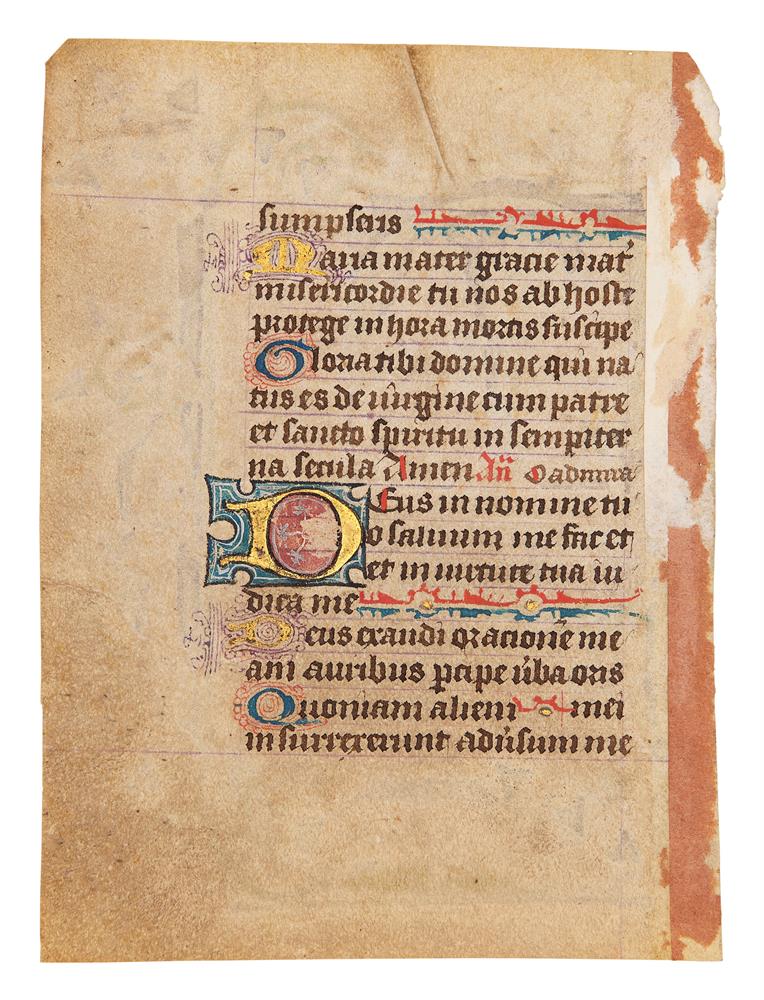 sumpseris
Maria mater gracie mat̄
misericordie tu nos ab hoste
protege in hora mortis suscipe
Gloria tibi domine qui na
tus es de uirgine cum patre
et sancto spiritu in sempiter
na secula Amen Añ O admira
Deus in nomine tu
o saluum me fac et
et in uirtute tua iu
dica me
Deus exaudi oracionē me
am auribus pcipe ūba oris
Quoniam alieni mei
insurrexerunt adūsum me